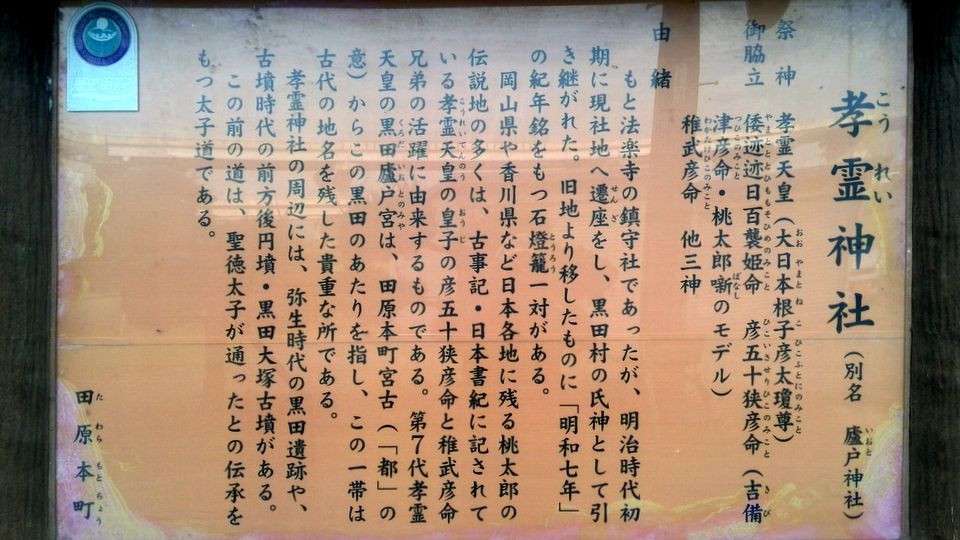 孝霊神社（別名 廬戸神社）
祭神 孝霊天皇（大日本根子彦太瓊尊）
御脇立 倭迹迹日百襲姫命 彦五十狭彦命（吉備
津彦命・桃太郎噺のモデル）
稚武彦命 他三神
由緒
もと法楽寺の鎮守社であったが、明治時代初
期に現社地へ遷座をし、黒田村の氏神として引
き継がれた。旧地より移したものに「明和七年」
の紀年銘をもつ石燈籠一対がある。
岡山県や香川県など日本各地に残る桃太郎の
伝説地の多くは、古事記・日本書紀に記されて
いる孝霊天皇の皇子の彦五十狭彦命と稚武彦命
兄弟の活躍に由来するものである。第７代孝霊
天皇の黒田廬戸宮は、田原本町宮古（「都」の
意）からこの黒田のあたりを指し、この一帯は
古代の地名を残した貴重な所である。
孝霊神社の周辺には、弥生時代の黒田遺跡や、
古墳時代の前方後円墳・黒田大塚古墳がある。
この前の道は、聖徳太子が通ったとの伝承を
もつ太子道である。
田原本町